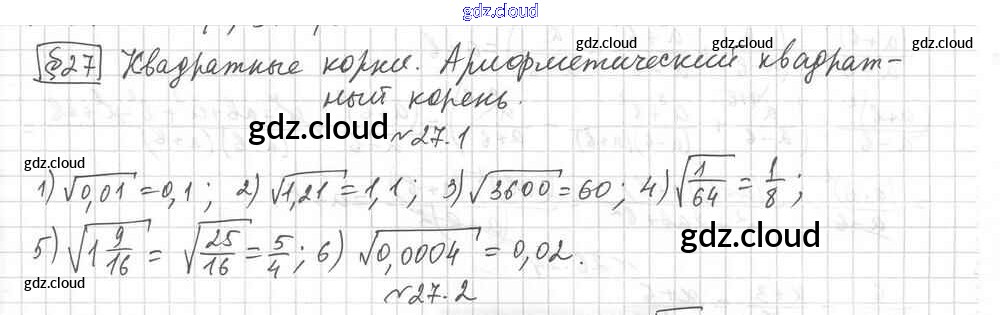 gdz.cloud
§27 Квадратные корни. Арифметический квадрат-
ный корень.
gdz.cloud gdz.cloud gdz.cloud gdz.cloud
gdz.cloud
№27.1
gdz.cloud
1) √0,01 = 0,1; 2) √1,21 = 1,1; 3) √3600 = 60; 4) √1/64 = 1/8;
gdz.cloud
5) √1 9/16 = √25/16 = 5/4; 6) √0,0004 = 0,02.
gdz.cloud
№27.2
gdz.cloud gdz.cloud gdz.cloud